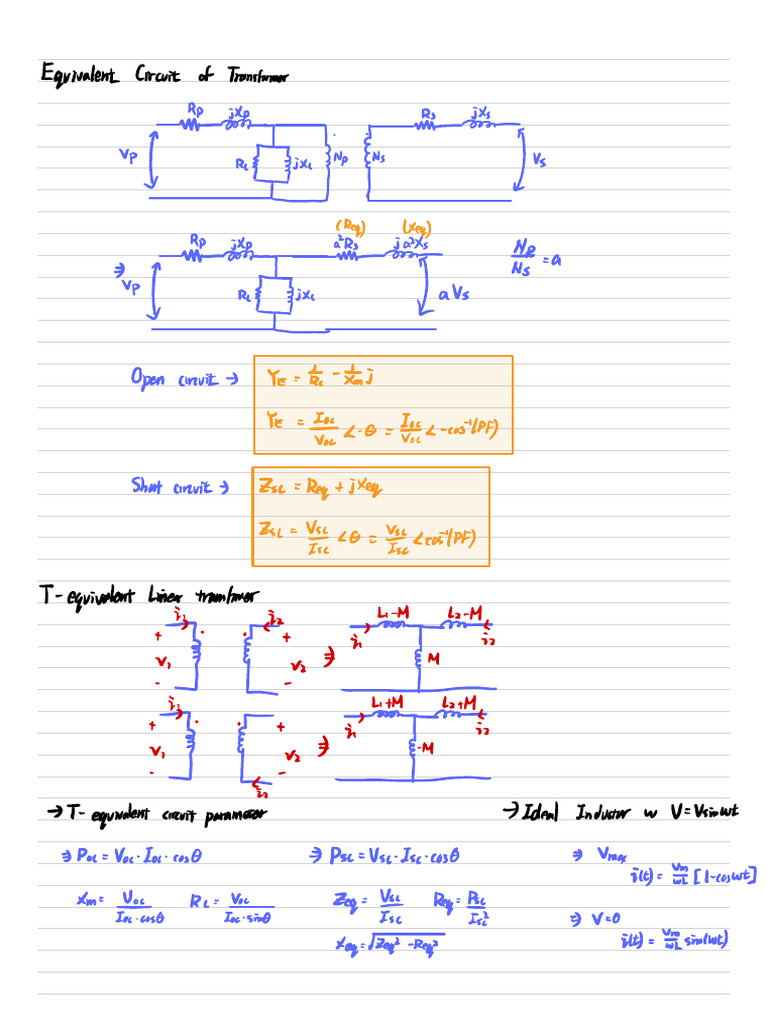 Equivalent Circuit of Transformer
Rp jXp Rs jXs
Vp Rc jXc Np Ns Vs
(Req) (Xeq)
Rp jXp a²Rs j a²Xs Np/Ns = a
⇒ Vp Rc jXc aVs
Open circuit → YE = 1/Rc - 1/Xm j
YE = Ioc/Voc ∠-θ = Ioc/Voc ∠-cos⁻¹(PF)
Short circuit → Zsc = Req + jXeq
Zsc = Vsc/Isc ∠θ = Vsc/Isc ∠cos⁻¹(PF)
T-equivalent Linear transformer
i1 i2 L1-M L2-M
+ + i1 i2
V1 V2 ⇒ M
- -
i1 L1+M L2+M
+ + i1 i2
V1 V2 ⇒ -M
- i2 -
→ T-equivalent circuit parameter → Ideal Inductor w V=Vsinwt
⇒ Poc = Voc·Ioc·cosθ ⇒ Psc = Vsc·Isc·cosθ ⇒ Vmax
i(t) = Vm/wL [1-coswt]
Xm = Voc/Ioc·cosθ Rc = Voc/Ioc·sinθ Zeq = Vsc/Isc Req = Psc/Isc² ⇒ V=0
Xeq = √Zeq² - Req² i(t) = Vm/wL sin(wt)